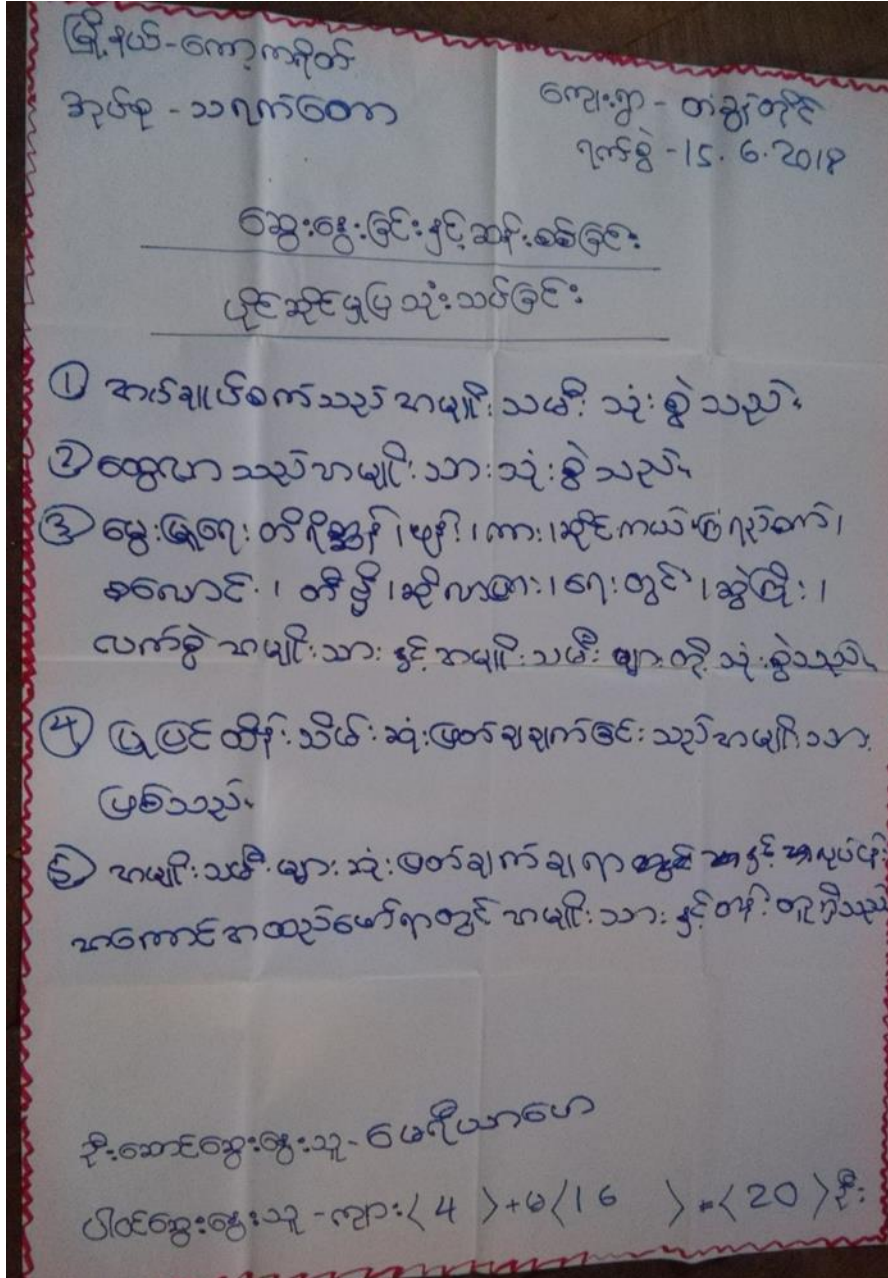 မြို့နယ်-ကော့ကရိတ်
အုပ်စု - သရက်တော
ကျေးရွာ - တံခွန်တိုင်
ရက်စွဲ -15.6.2018
ဆွေးနွေးခြင်းနှင့်ဆန်းစစ်ခြင်း
ပိုင်ဆိုင်မှုပြသုံးသပ်ခြင်း
① အပ်ချုပ်စက်သည် အမျိုးသမီး သုံးစွဲသည်။
② ထွေလာသည်အမျိုးသားသုံးစွဲသည်။
③ မွေးမြူရေး တိရိစ္ဆာန်၊ ဖုန်း၊ ကား၊ ဆိုင်ကယ်၊ ကြံရည်စက်၊
စလောင်း၊ တီဗွီ၊ ဆိုလာပြား၊ ရေးတွင်၊ ဆွဲကြိုး၊
လက်စွဲ အမျိုးသား နှင့် အမျိုးသမီး များတို့ သုံးစွဲသည်။
④ ပြုပြင်ထိန်းသိမ်း ဆုံးဖြတ်ချချက်ခြင်း သည်အမျိုးသား
ဖြစ်သည်။
⑤ အမျိုးသမီးများ ဆုံးဖြတ်ချက်ချရာတွင် နှင့် အလုပ်ပိုး
အကောင်အထည်ဖော်ရာတွင် အမျိုးသား နှင့်တန်းတူရှိသည်
ဦးဆောင်ဆွေးနွေးသူ-မေရီယာဟေ
ပါဝင်ဆွေးနွေးသူ -ကျား〈 4 〉+မ〈 16 〉=〈 20 〉ဦး